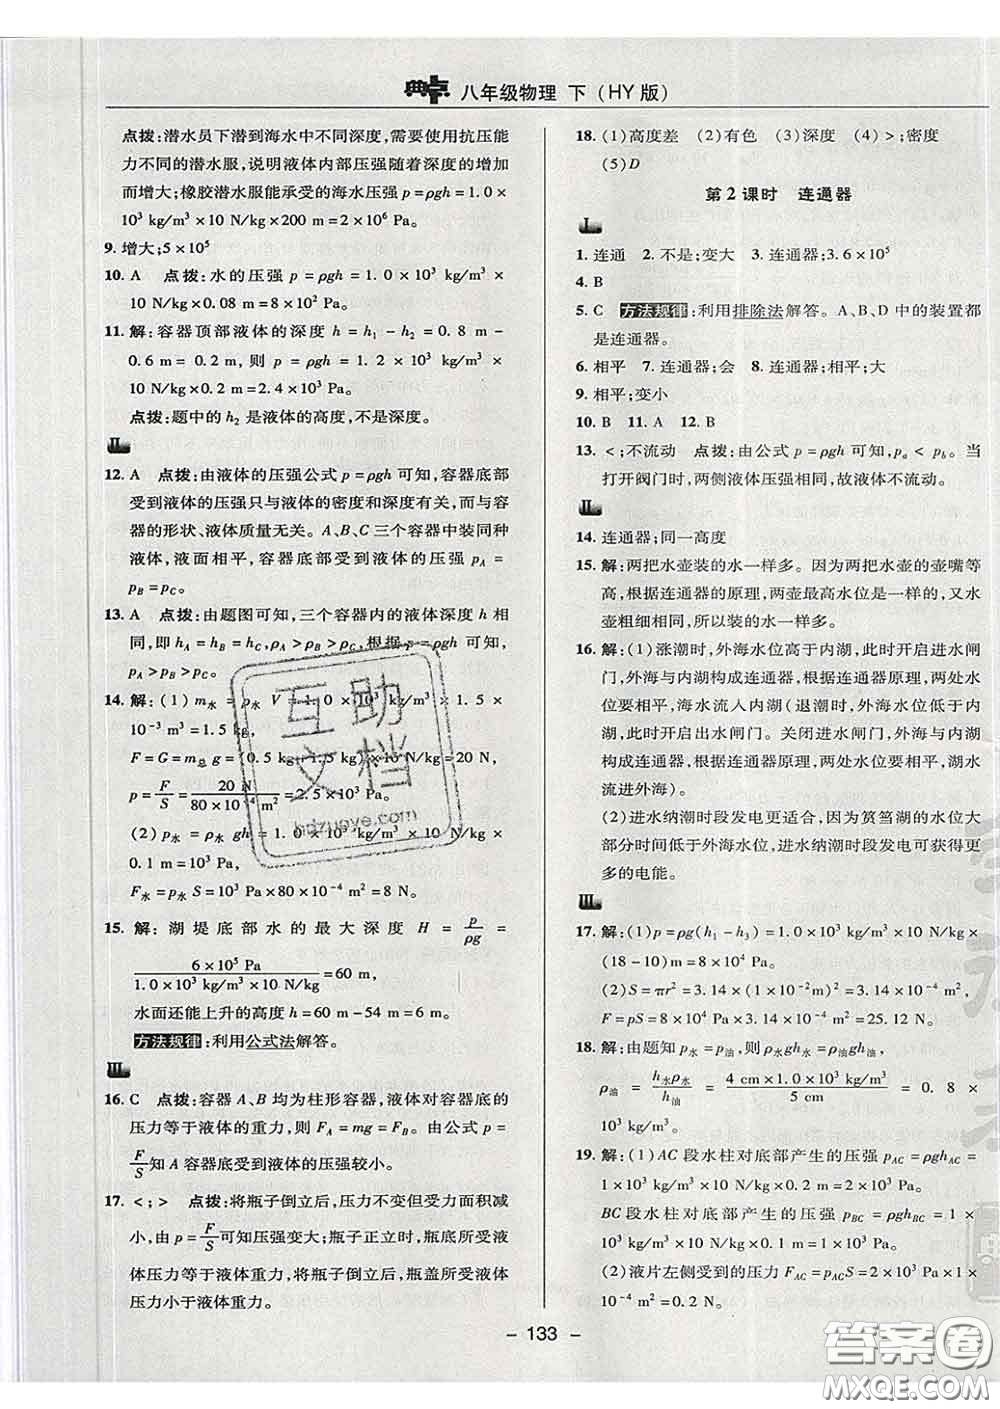 典中点 八年级物理 下(HY版)
点拨:潜水员下潜到海水中不同深度,需要使用抗压能
力不同的潜水服,说明液体内部压强随着深度的增加
而增大;橡胶潜水服能承受的海水压强 p=ρgh=1.0×
10³ kg/m³×10 N/kg×200 m=2×10⁶ Pa.
9. 增大;5×10⁵
10. A 点拨:水的压强 p=ρgh=1.0×10³ kg/m³×
10 N/kg×0.08 m=8×10² Pa.
11. 解:容器顶部液体的深度 h=h₁-h₂=0.8 m-
0.6 m=0.2 m,则 p=ρgh=1.2×10³ kg/m³×
10 N/kg×0.2 m=2.4×10³ Pa.
点拨:题中的 h₂ 是液体的高度,不是深度。
Ⅱ
12. A 点拨:由液体的压强公式 p=ρgh 可知,容器底部
受到液体的压强只与液体的密度和深度有关,而与容
器的形状、液体质量无关。A、B、C 三个容器中装同种
液体,液面相平,容器底部受到液体的压强 p_A=
p_B=p_C。
13. A 点拨:由题图可知,三个容器内的液体深度 h 相
同,即 h_A=h_B=h_C,ρ_A>ρ_B>ρ_C,根据 p=ρgh 可知,
p_A>p_B>p_C。
14. 解:(1) m水=ρ水 V=1.0×10³ kg/m³×1.5×
10⁻³ m³=1.5 kg,
F=G=m总 g=(0.5 kg+1.5 kg)×10 N/kg=20 N,
p=F/S=20 N/(80×10⁻⁴ m²)=2.5×10³ Pa.
(2) p水=ρ水 gh=1.0×10³ kg/m³×10 N/kg×
0.1 m=10³ Pa,
F水=p水 S=10³ Pa×80×10⁻⁴ m²=8 N.
15. 解:湖堤底部水的最大深度 H=p/(ρg)=
6×10⁵ Pa/(1.0×10³ kg/m³×10 N/kg)=60 m,
水面还能上升的高度 h=60 m-54 m=6 m。
方法规律:利用公式法解答。
Ⅲ
16. C 点拨:容器 A、B 均为柱形容器,液体对容器底的
压力等于液体的重力,则 F_A=mg=F_B。由公式 p=
F/S 知 A 容器底受到液体的压强较小。
17. <;> 点拨:将瓶子倒立后,压力不变但受力面积减
小,由 p=F/S 可知压强变大;瓶子正立时,瓶底所受液
体压力等于液体重力,将瓶子倒立后,瓶盖所受液体
压力小于液体重力。
18. (1)高度差 (2)有色 (3)深度 (4)>;密度
(5)D
第2课时 连通器
Ⅰ
1. 连通 2. 不是;变大 3. 连通器;3.6×10⁵
4. B
5. C 方法规律:利用排除法解答。A、B、D 中的装置都
是连通器。
6. 相平 7. 连通器;会 8. 连通器;相平;大
9. 相平;变小
10. B 11. A 12. B
13. <;不流动 点拨:由公式 p=ρgh 可知,p_a<p_b。当
打开阀门时,两侧液体压强相同,故液体不流动。
Ⅱ
14. 连通器;同一高度
15. 解:两把水壶装的水一样多。因为两把水壶的壶嘴等
高,根据连通器的原理,两壶最高水位是一样的,又水
壶粗细相同,所以装的水一样多。
16. 解:(1)涨潮时,外海水位高于内湖,此时开启进水闸
门,外海与内湖构成连通器,根据连通器原理,两处水
位要相平,海水流入内湖(退潮时,外海水位低于内
湖,此时开启出水闸门。关闭进水闸门,外海与内湖
构成连通器,根据连通器原理,两处水位要相平,湖水
流进外海)。
(2)进水纳潮时段发电更适合,因为筼筜湖的水位大
部分时间低于外海水位,进水纳潮时段发电可获得更
多的电能。
Ⅲ
17. 解:(1)p=ρg(h₁-h₃)=1.0×10³ kg/m³×10 N/kg×
(18-10)m=8×10⁴ Pa.
(2)S=πr²=3.14×(1×10⁻²m)²=3.14×10⁻⁴ m²,
F=pS=8×10⁴ Pa×3.14×10⁻⁴ m²=25.12 N。
18. 解:由题知 p水=p油,则 ρ水gh水=ρ油gh油,
ρ油=h水ρ水/h油=4 cm×1.0×10³ kg/m³/5 cm=0.8×
10³ kg/m³。
19. 解:(1)AC 段水柱对底部产生的压强 p_AC=ρgh_AC=
1×10³ kg/m³×10 N/kg×0.2 m=2×10³ Pa,
BC 段水柱对底部产生的压强 p_BC=ρgh_BC=1×
10³ kg/m³×10 N/kg×0.1 m=1×10³ Pa;
(2)液片左侧受到的压力 F_AC=p_AC S=2×10³ Pa×1
×10⁻⁴ m²=0.2 N。
- 133 -
互助
文档
hdzuoye.com
答案圈
MXQE.COM